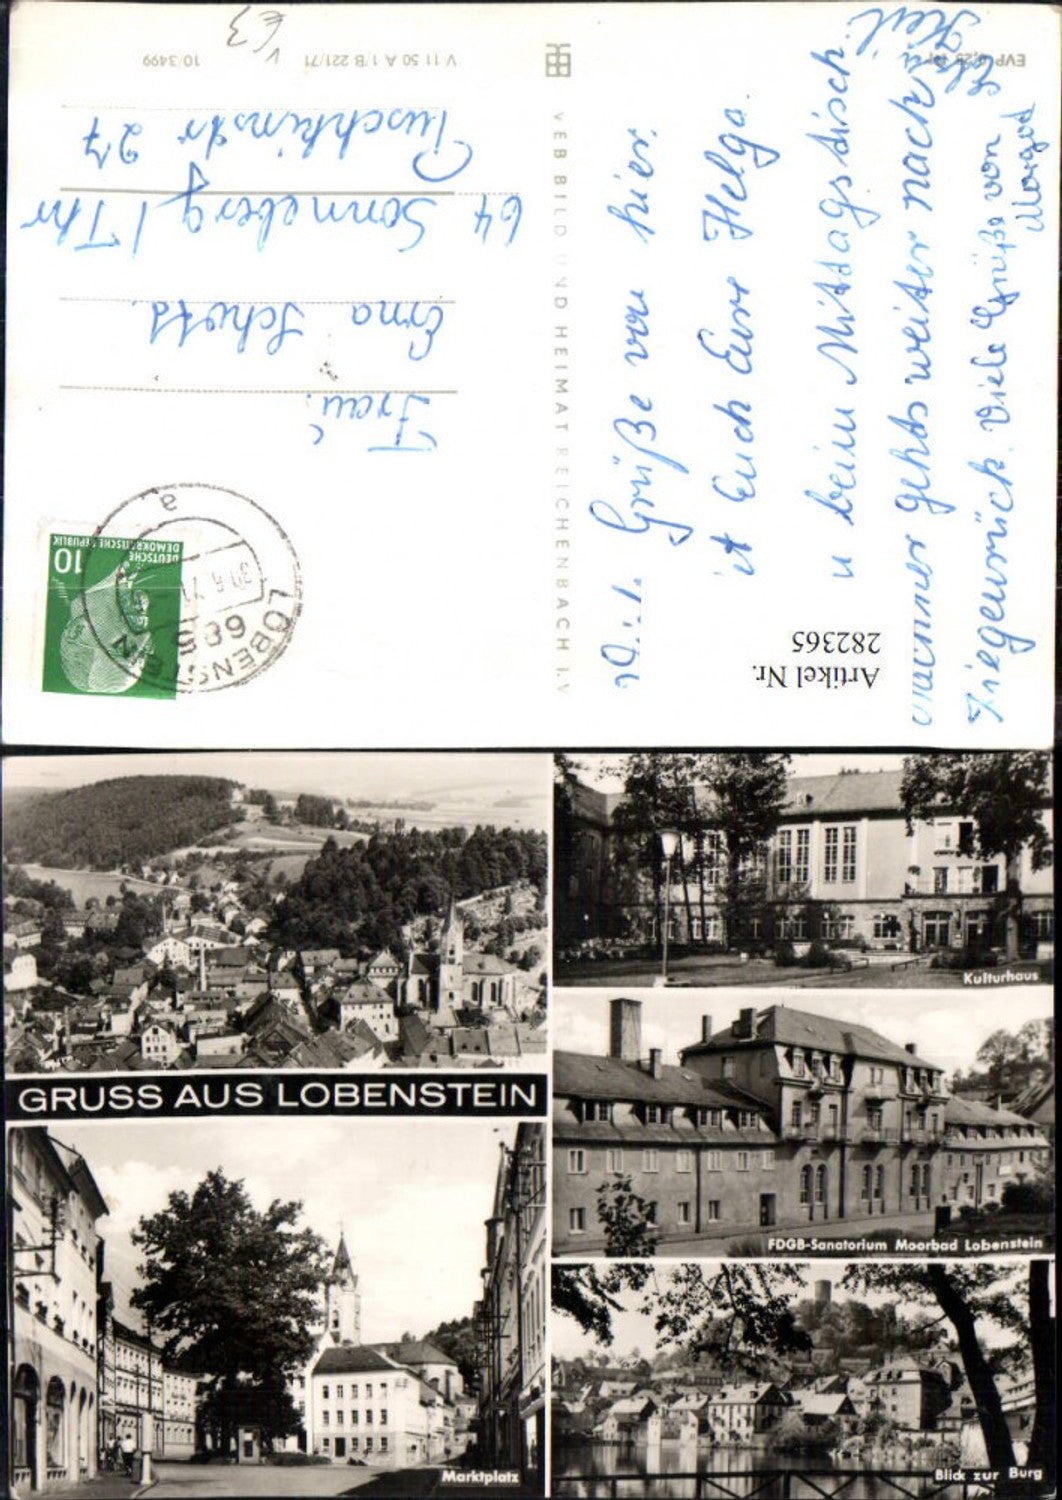 Grüße von hier
Euch Eure Helga.
u beim Mittagstisch.
gehts weiter nach
Ziegenrück. Viele Grüße von
Heil
VEB BILD UND HEIMAT REICHENBACH I.V
Artikel Nr.
282365
EVP 0,25
V 11 50 A 1/B 221/71
10/3499
€3
DEUTSCHE
DEMOKRATISCHE REPUBLIK
10
LOBENSTEIN
685
e
Frau
Erna Schott.
64 Sonneberg / Thr
Puschkinstr 27
Kulturhaus
GRUSS AUS LOBENSTEIN
FDGB-Sanatorium Moorbad Lobenstein
Marktplatz
Blick zur Burg